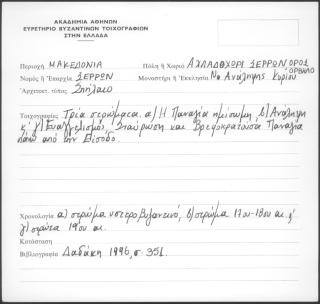 ΑΚΑΔΗΜΙΑ ΑΘΗΝΩΝ
ΕΥΡΕΤΗΡΙΟ ΒΥΖΑΝΤΙΝΩΝ ΤΟΙΧΟΓΡΑΦΙΩΝ
ΣΤΗΝ ΕΛΛΑΔΑ
Περιοχή ΜΑΚΕΔΟΝΙΑ Πόλη ή Χωριό ΑΧΛΑΔΟΧΩΡΙ ΣΕΡΡΩΝ ΟΡΟΣ
ΟΡΒΗΛΟ
Νομός ή Ἐπαρχία ΣΕΡΡΩΝ Μοναστήρι ή Ἐκκλησία Ναός Ανάληψης Κυρίου
Ἀρχιτεκτ. τύπος Σπήλαιο
Τοιχογραφίες Τρία στρώματα. α) Η Παναγία ημίσωμη, β) Ανάληψη
κ' γ) Ευαγγελισμός, Σταύρωση και Βρεφοκρατούσα Παναγία
πάνω από την Είσοδο.
Χρονολογία α) στρώμα υστεροβυζαντινό, β) στρώμα 17ου-18ου αι. κ'
γ) στρώμα 19ου αι.
Κατάσταση
Βιβλιογραφία Δαδάκη 1996, σ. 351.